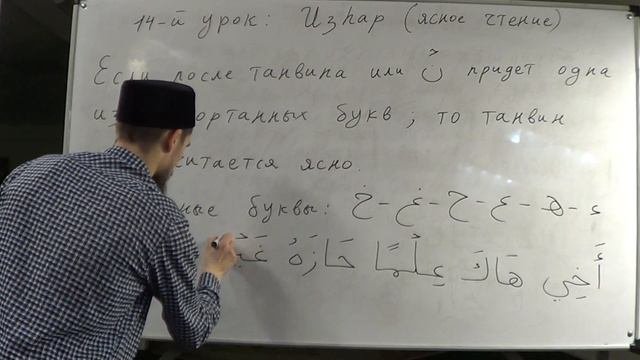 14-й урок: Изhар (ясное чтение)
Если после танвина или نْ придет одна
из ортанных букв, то танвин
итается ясно.
ные буквы: ء - هـ - ع - ح - غ - خ
أَخِي هَاكَ عِلْمًا حَازَهُ